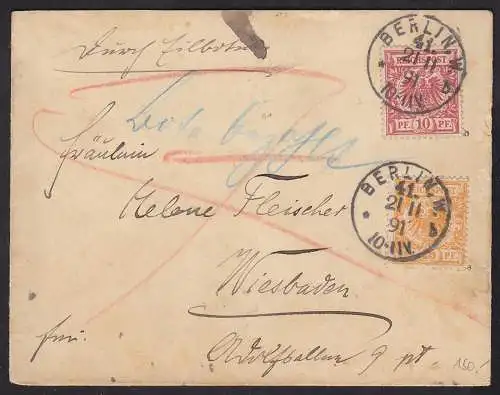 Durch Eilboten
BERLIN, W.
41.
21 11
91
10-11V.
REICHSPOST
PF 10 PF
Bote bezahlt
Fräulein
Helene Fleischer
BERLIN, W.
41.
21 11
91
10-11V.
PF.
Wiesbaden
frei.
Adolfsallee 9 pt.
150!